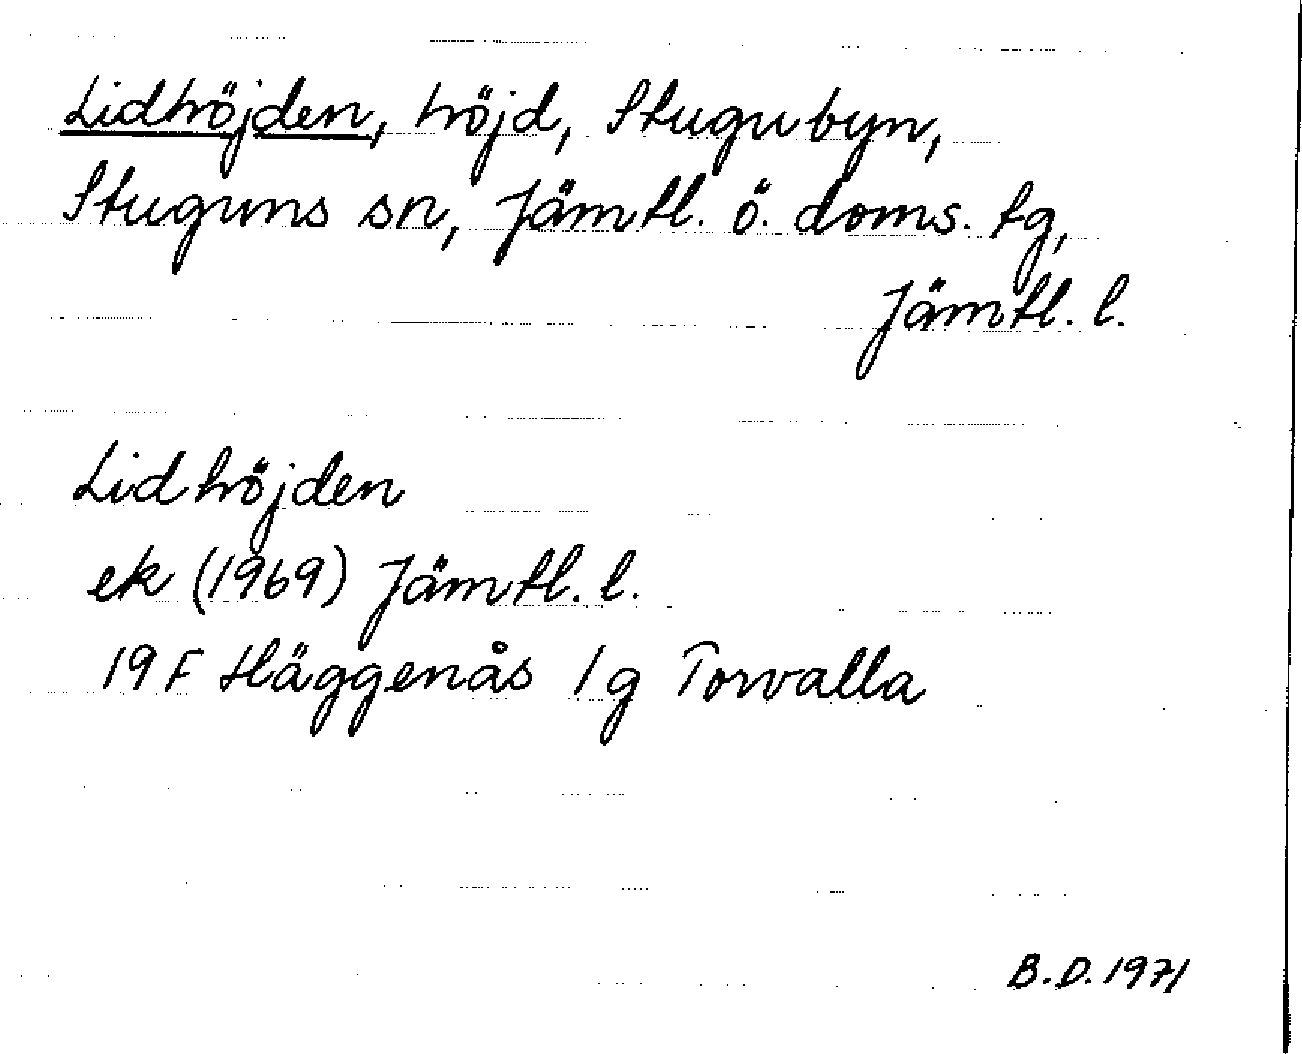 Lidhöjden, höjd, Stugubyn,
Stuguns sn, Jämtl. ö. doms. tg,
Jämtl. l.
Lidhöjden
ek (1969) Jämtl. l.
19 F Häggenås 1 g Torvalla
B.D. 1971